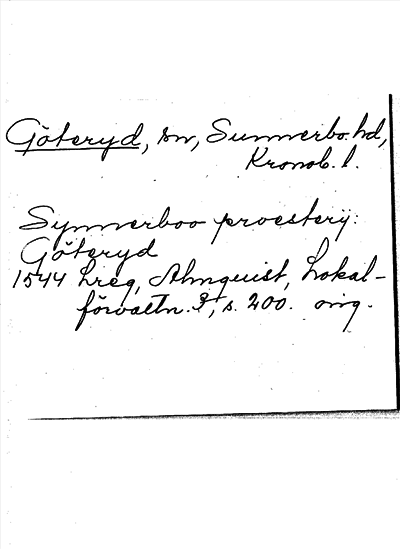 Göteryd, sn, Sunnerbo hd,
Kronob. l.
Synnerboo proesterij:
Göteryd
1544 hreg, Almquist, Lokal-
förvaltn. 3, s. 200. orig.